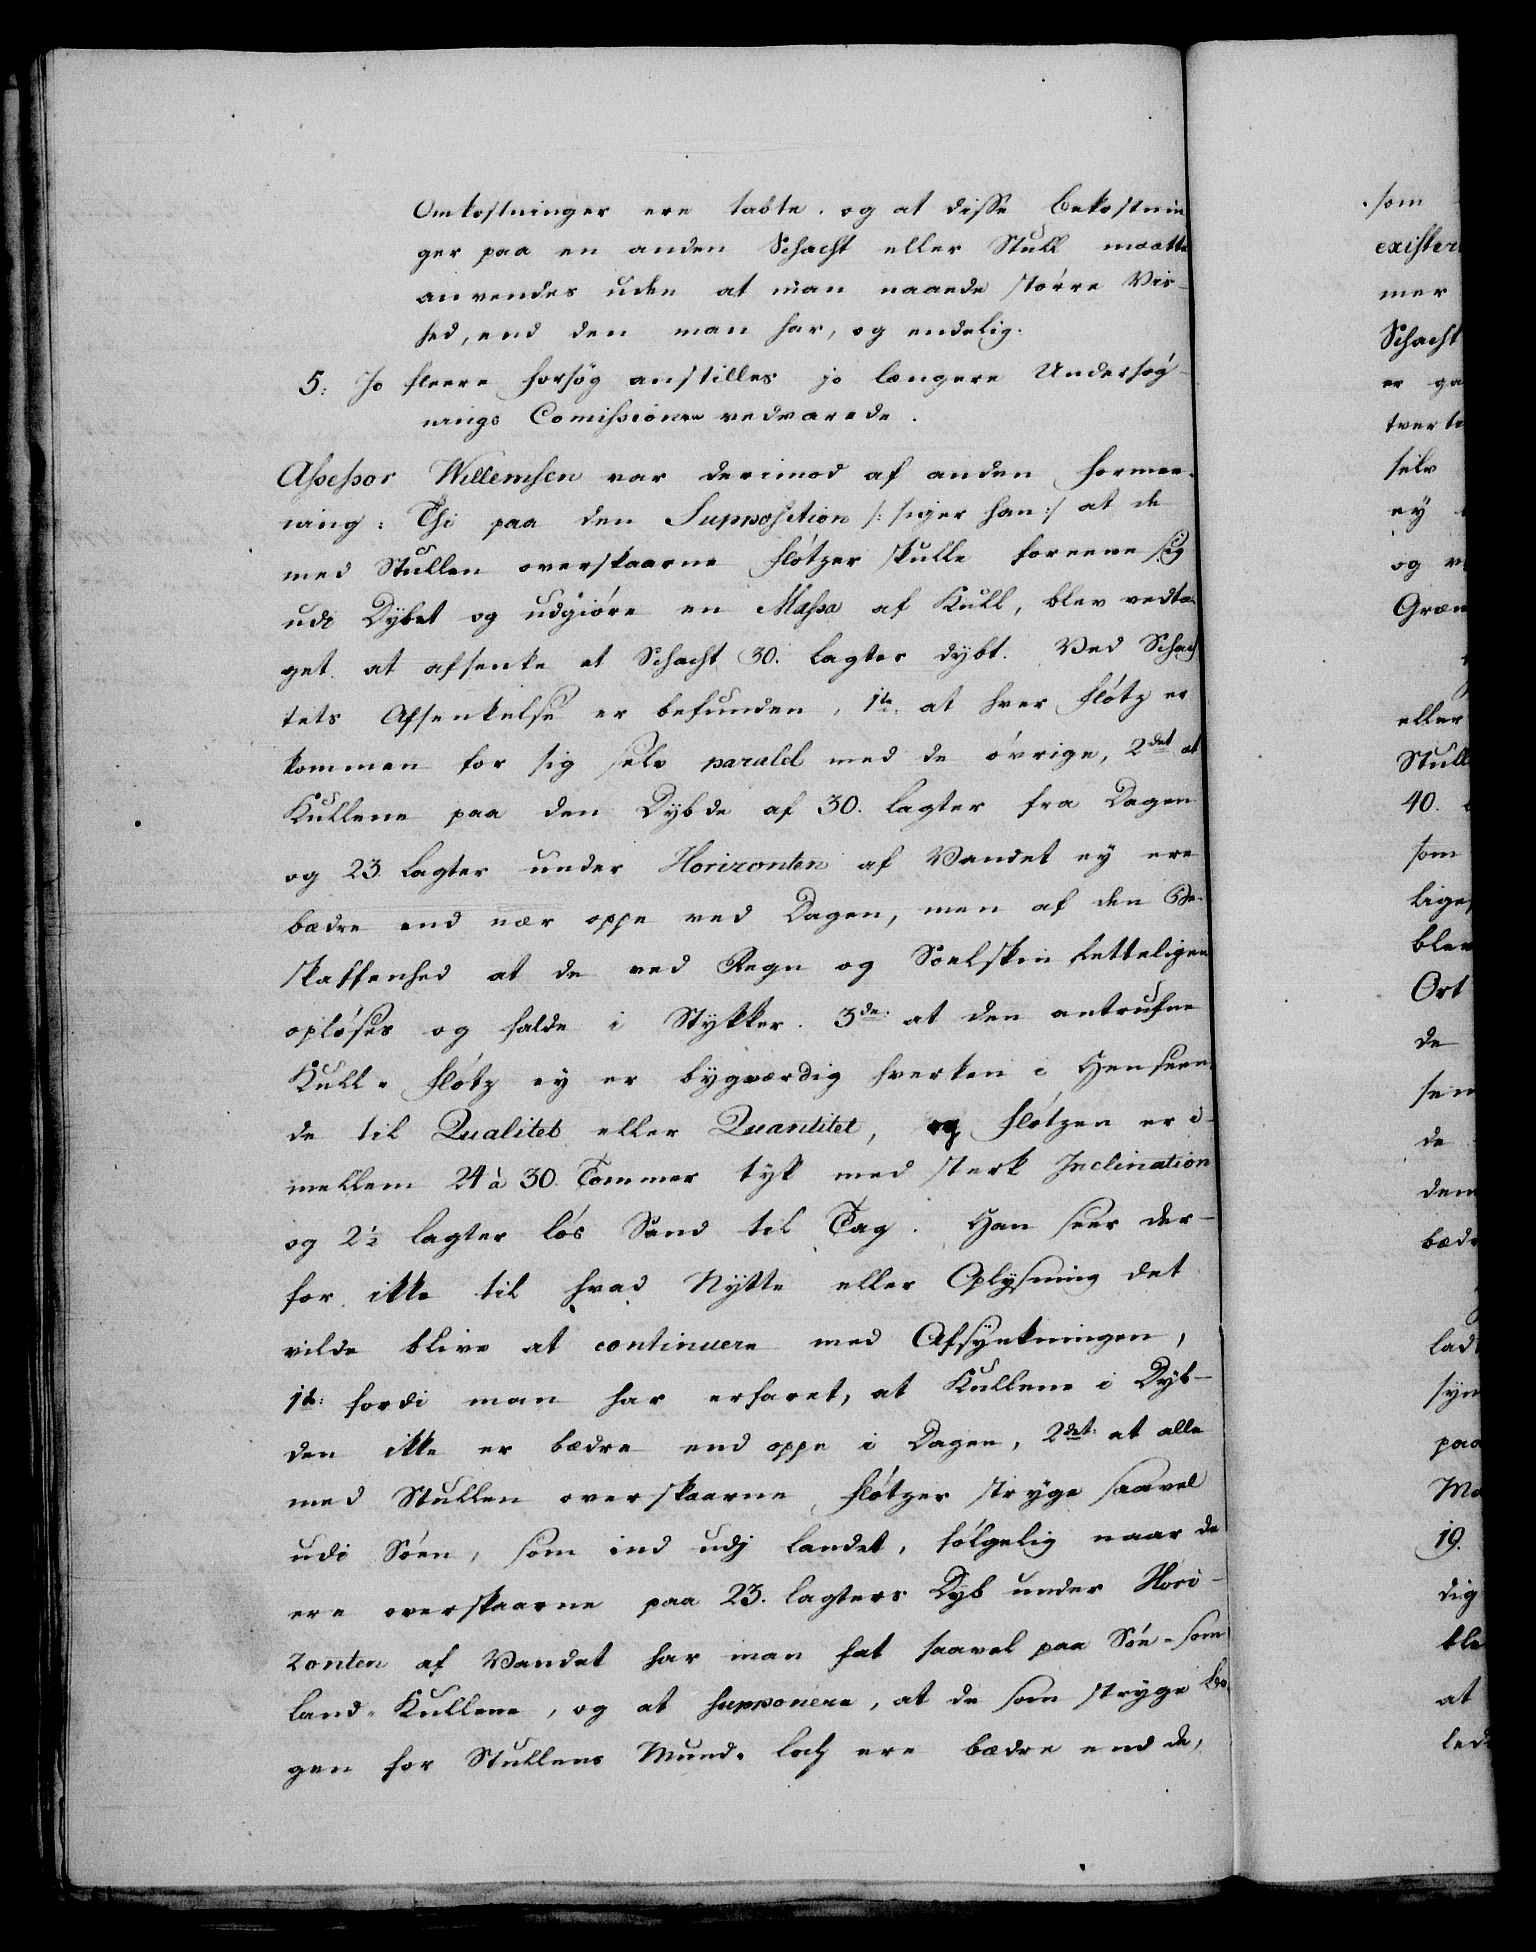 Omkostninger ere tabte. og at disse Bekostnin
ger paa en anden Schacht eller Stull maatte
anvendes uden at man naaede større Vis-
hed, end den man har, og endelig.
5: Jo fleere Forsøg anstilles jo længere Undersøg-
nings Comissionen vedvarede.
Assessor Willemsen var derimod af anden Formee-
ning: Thi paa den Supposition /: siger han :/ at de
med Stullen overskaarne Fløtzer skulle foreene sig
udi Dybet og udgiøre en Massa af Kull, blev vedta-
get at afsenke et Schacht 30. Lagter dybt. Ved Schach
tets Afsenkelse er befunden, 1te at hver Fløtz er
kommen for sig selv paralel med de øvrige, 2det at
Kullene paa den Dybde af 30. Lagter fra Dagen
og 23 Lagter under Horizonten af Vandet ey ere
bædre end nær oppe ved Dagen, men af den Be-
skaffenhed at de ved Regn og Soelskin letteligen
opløses og falde i Stykker. 3de. at den antrufne
Kull-Fløtz ey er bygværdig hverken i Henseen-
de til Qualitet eller Quantitet, og Fløtzen er i-
mellem 24 à 30. Tommer tyk med sterk Inclination
og 2½ Lagter løs Sand til Tag. Han seer der-
for ikke til hvad Nytte eller Oplysning det
vilde blive at continuere med Afsynkningen,
1te: fordi man har erfaret, at Kullene i Dyb-
den ikke er bædre end oppe i Dagen, 2det: at alle
med Stullen overskaarne Fløtzer stryge saavel
udi Søen, som ind udj Landet, følgelig naar de
ere overskaarne paa 23. Lagters Dyb under Hori-
zonten af Vandet har man fat saavel paa Søe-som
Land-Kullene, og at supponere, at de som stryge
gen for Stullens Mund-Loch ere bædre end de,
som
exister
mer
Schacht
er ga
tverte
selv
ey
og
Græn
eller
Stull
40.
som
lige
blev
Ort
de
sen
de
den
bæd
lad
syn
paa
Ma
19.
dig
ble
at
led